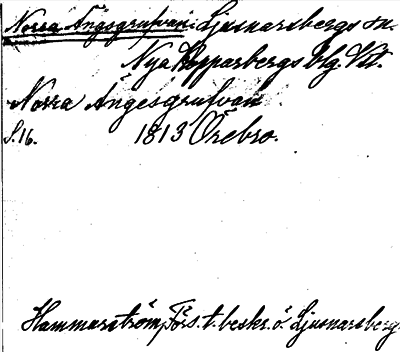 Norra Ängsgrufvan. Ljusnarsbergs sn.
Nya Kopparbergs Blg. Vtl.
Norra Ängesgrufvan
S.16. 1813 Örebro.
Hammarström, Förs. t. beskr. ö. Ljusnarsberg.